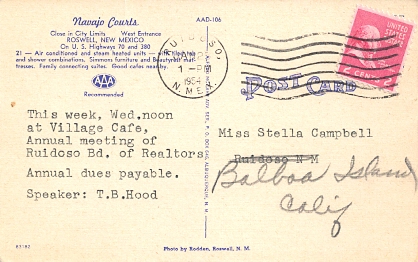 Navajo Courts.
AAD-106
Close in City Limits West Entrance
ROSWELL, NEW MEXICO
On U. S. Highways 70 and 380
21 — Air conditioned and steam heated units — with tile tubs
and shower combinations. Simmons furniture and Beautyrest mat-
tresses. Family connecting suites. Good cafes nearby.
AAA
Recommended
RUIDOSO,
JAN
1 - PM
1954
N. MEX.
UNITED STATES
2 CENTS 2
POST CARD
This week, Wed.noon
at Village Cafe,
Annual meeting of
Ruidoso Bd. of Realtors
Annual dues payable.
Speaker: T.B.Hood
Miss Stella Campbell
Ruidoso N M
Balboa Island
Calif
83182
Photo by Rodden, Roswell, N. M.